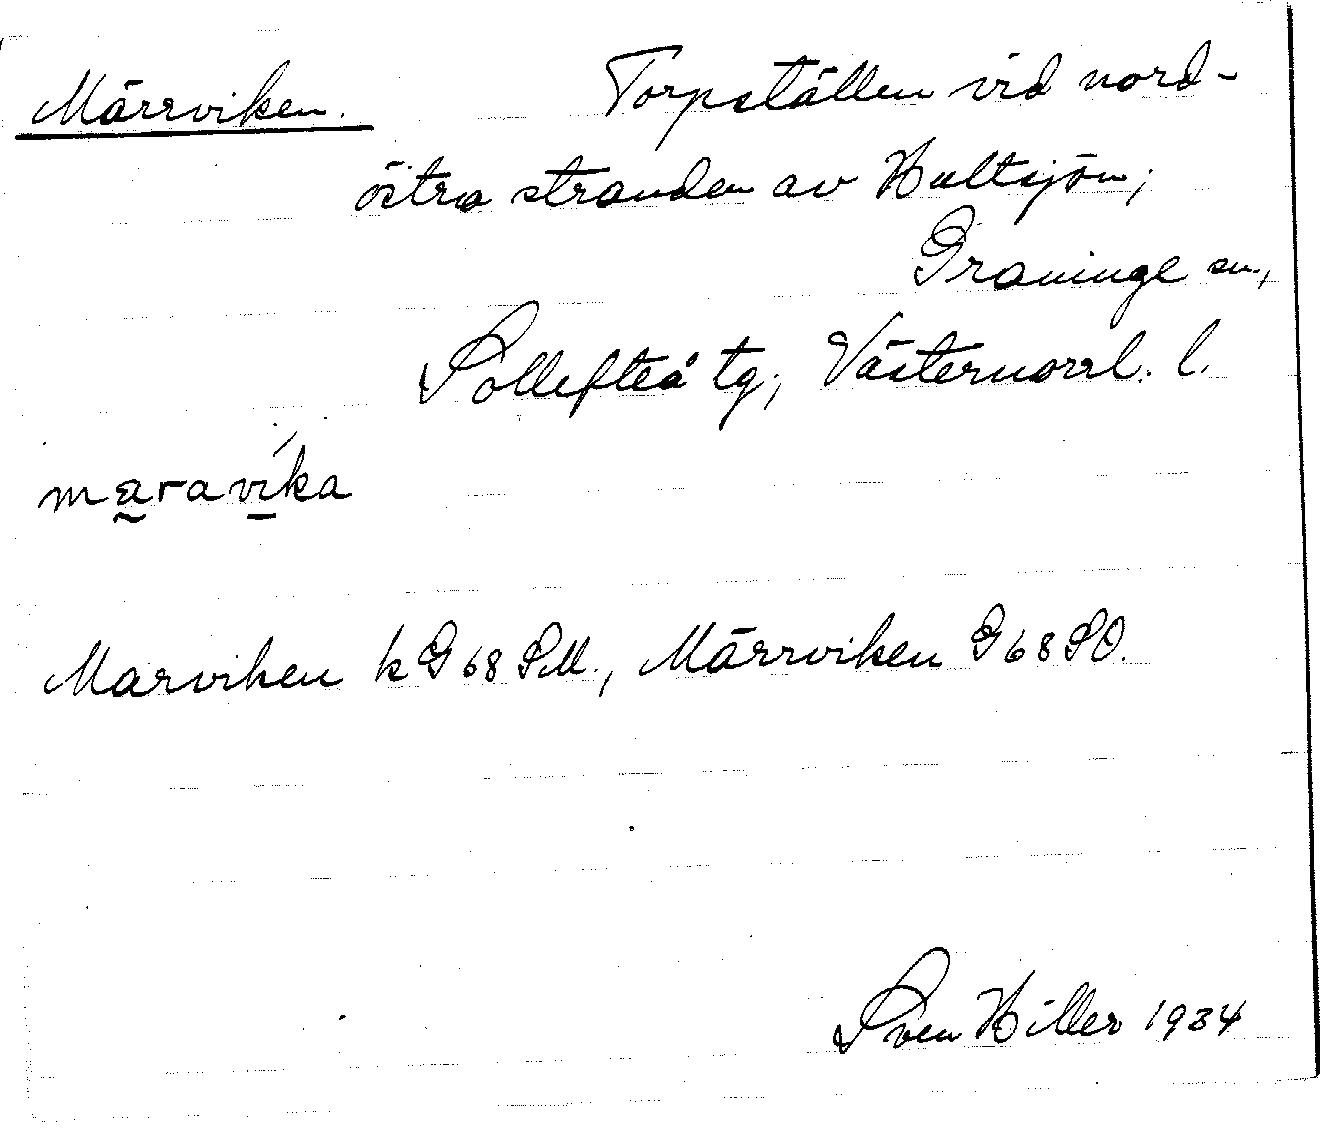 Märrviken. Torpställen vid nord-
östra stranden av Hultsjön;
Graninge sn.,
Sollefteå tg; Västernorrl. l.
maravíka
Marviken k G 68 SM., Märrviken G 68 SO.
Sven Hiller 1934